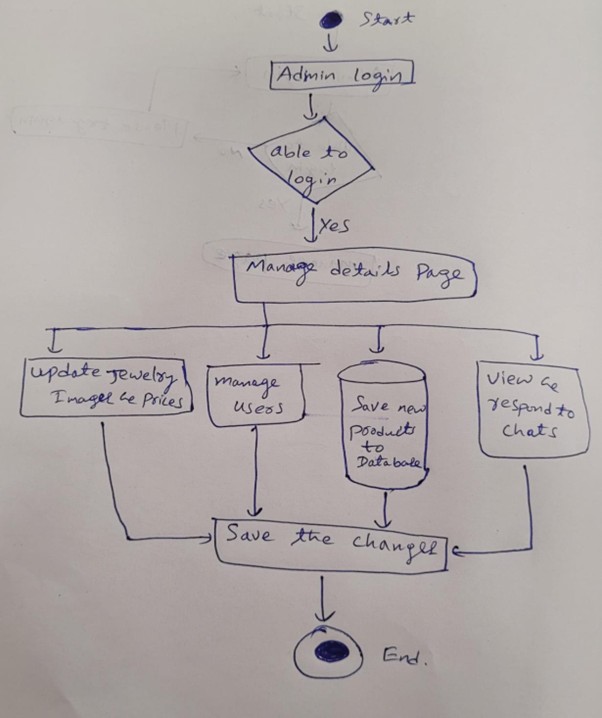 Start
Admin login
able to
login
Yes
Manage details Page
Update Jewelry
Images & Prices
Manage
Users
Save new
products
to
Database
View &
respond to
Chats
Save the changes
End.